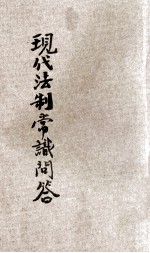 現代法制常識問答